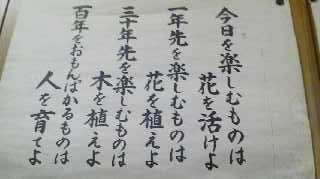 今日を楽しむものは
花を活けよ
一年先を楽しむものは
花を植えよ
三十年先を楽しむものは
木を植えよ
百年をおもんばかるものは
人を育てよ